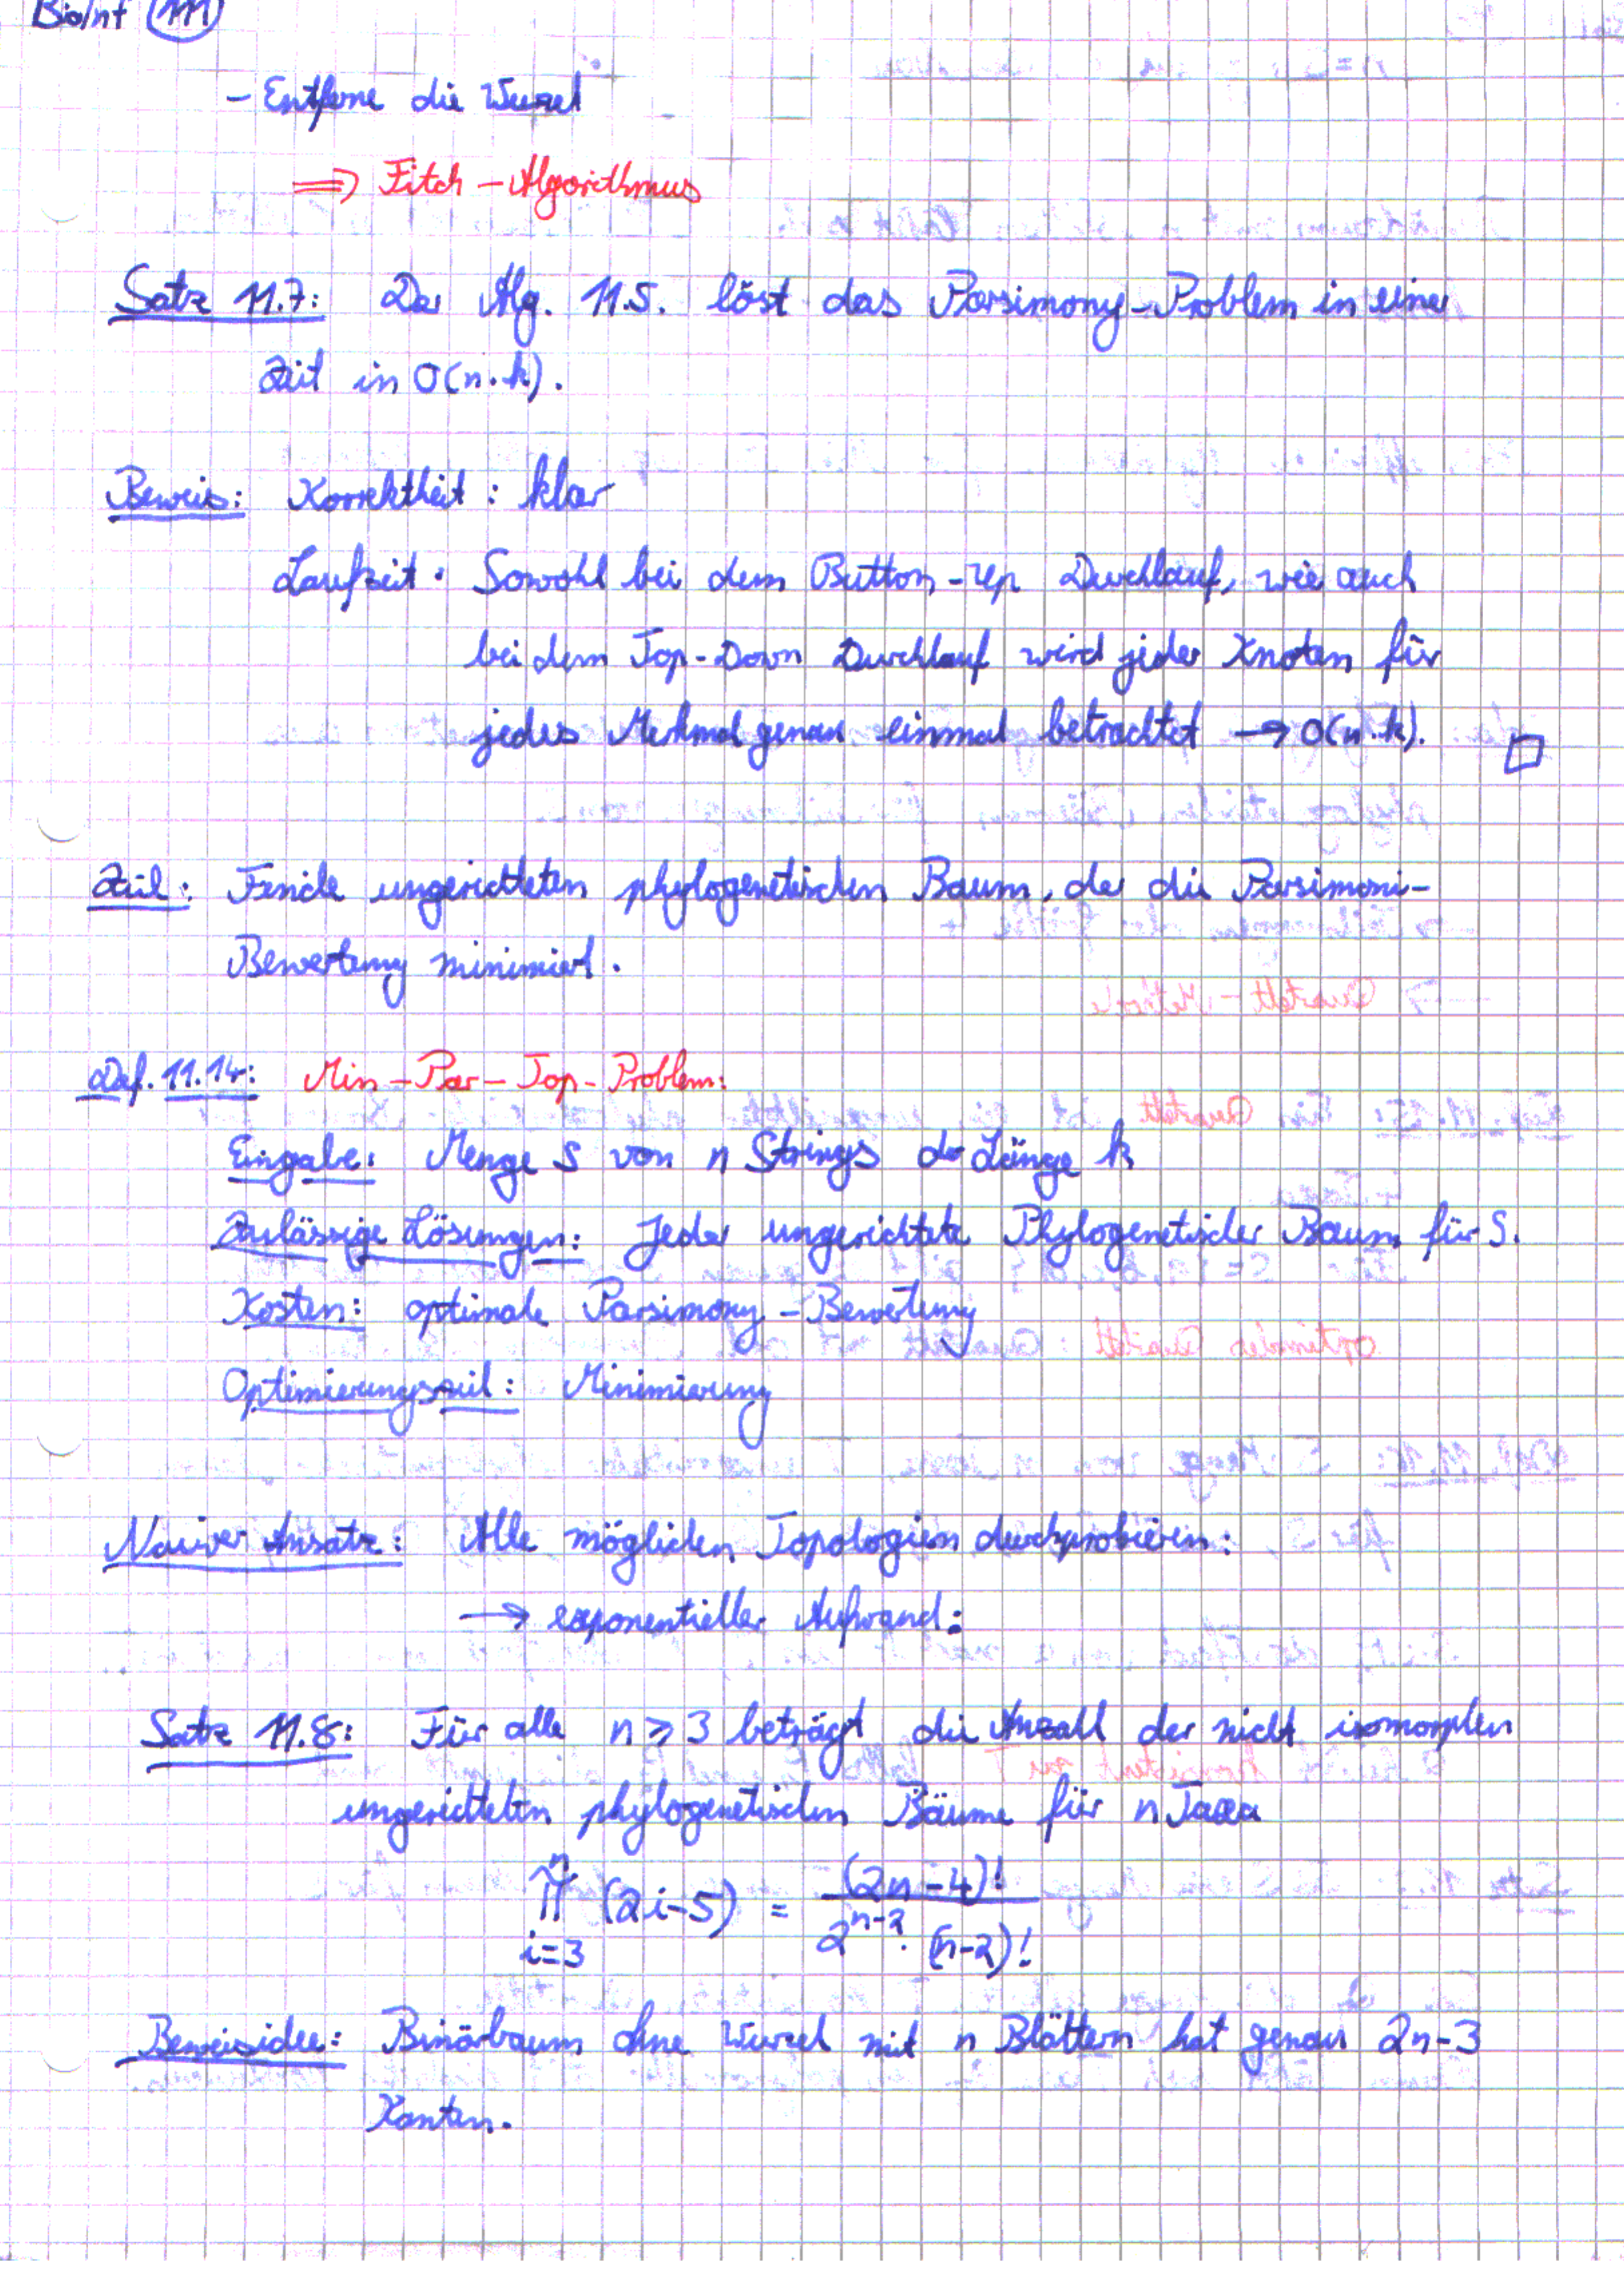 BioInf 111
- Entferne die Wurzel
=> Fitch-Algorithmus
Satz 11.7: Der Alg. 11.5. löst das Parsimony-Problem in einer
Zeit in O(n·k).
Beweis: Korrektheit: klar
Laufzeit: Sowohl bei dem Button-up Durchlauf, wie auch
bei dem Top-Down Durchlauf wird jeder Knoten für
jedes Merkmal genau einmal betrachtet → O(n·k). □
Ziel: Finde ungerichteten phylogenetischen Baum, der die Parsimoni-
Bewertung minimiert.
Def. 11.14: Min-Par-Top-Problem:
Eingabe: Menge S von n Strings der Länge k
Zulässige Lösungen: Jeder ungerichtete Phylogenetischer Baum für S.
Kosten: optimale Parsimony-Bewertung
Optimierungsziel: Minimierung
Naiver Ansatz: Alle möglichen Topologien durchprobieren:
→ exponentieller Aufwand:
Satz 11.8: Für alle n ≥ 3 beträgt die Anzahl der nicht isomorphen
ungerichteten phylogenetischen Bäume für n Taxa
∏_{i=3}^{n} (2i-5) = (2n-4)! / (2^{n-2} · (n-2)!)
Beweisidee: Binärbaum ohne Wurzel mit n Blättern hat genau 2n-3
Kanten.